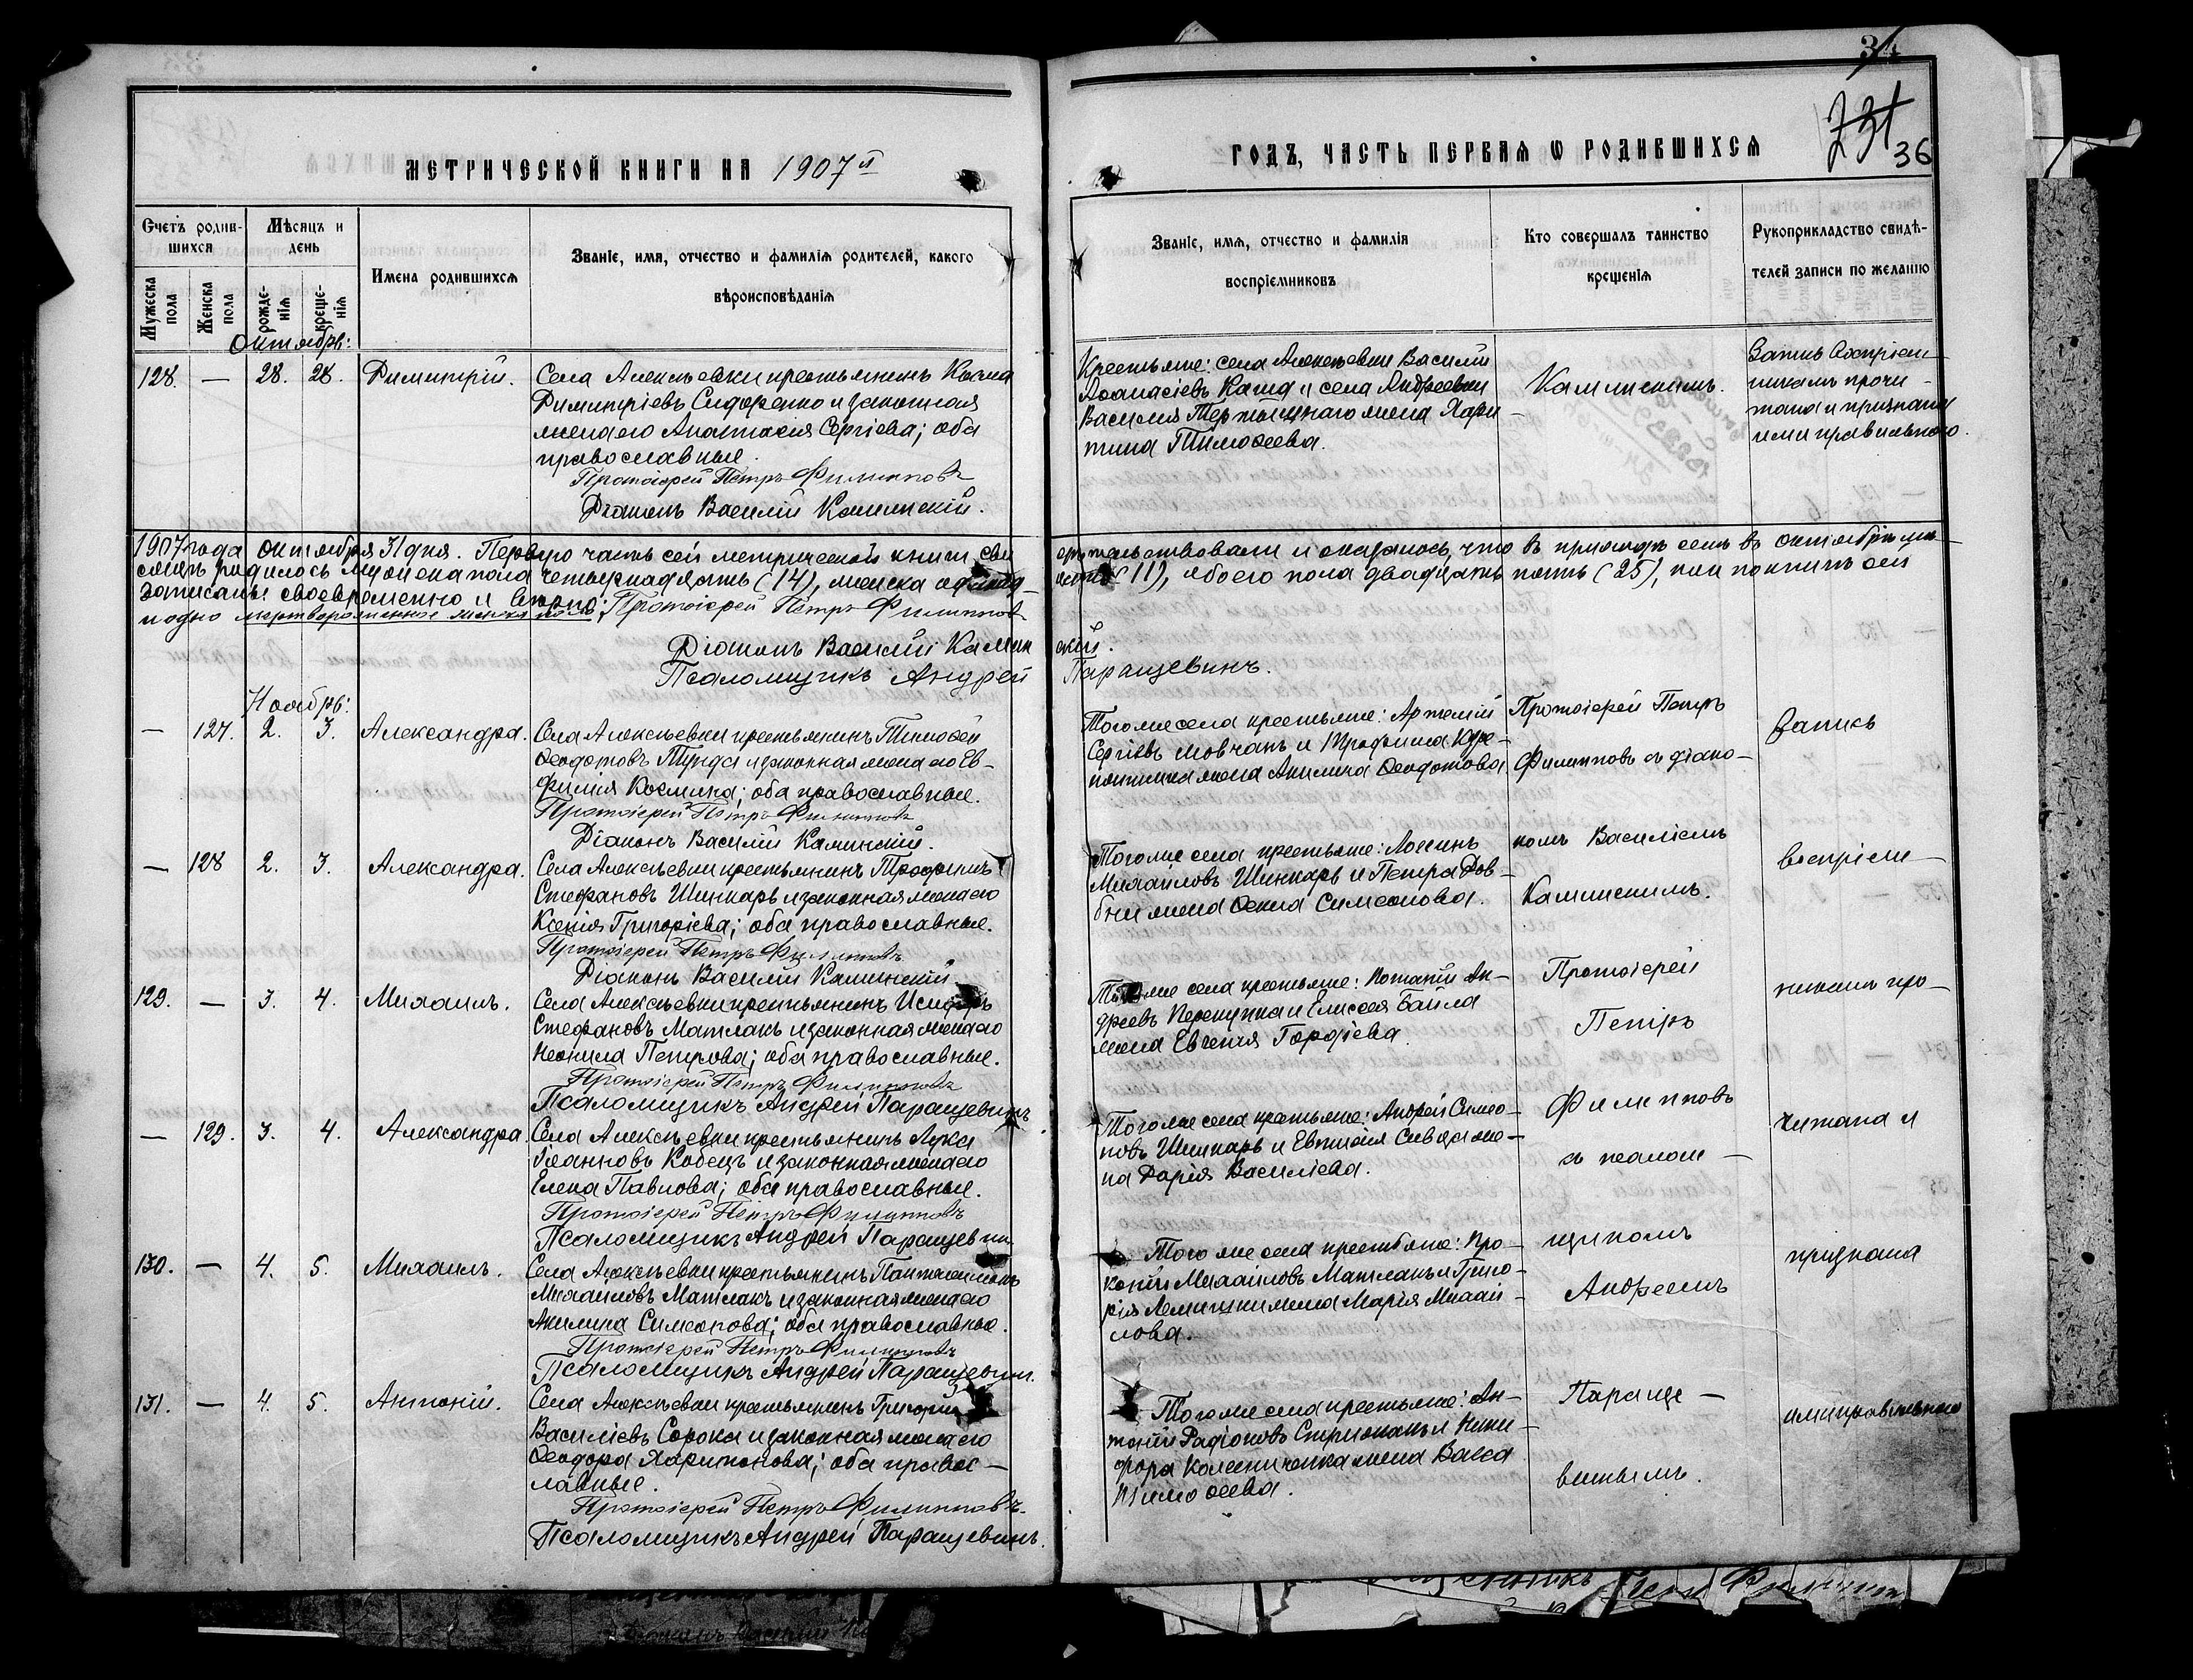 34
231
36
МЕТРИЧЕСКОЙ КНИГИ НА 1907й
ГОДЪ, ЧАСТЬ ПЕРВАЯ Ѡ РОДИВШИХСЯ
Счетъ родив-
шихся
Мѣсяцъ и
день
Имена родившихся
Званіе, имя, отчество и фамилія родителей, какого
вѣроисповѣданія
Мужеска пола
Женска пола
рожде-
нія
креще-
нія
Званіе, имя, отчество и фамилія
воспріємниковъ
Кто совершалъ таинство
крещенія
Рукоприкладство свидѣ-
телей записи по желанію
Октябрь:
128. — 28. 28. Димитрій.
Села Алексѣевки крестьянинъ Косма
Димитріевъ Сидоренко и законная
жена его Анастасія Сергіева; оба
православные.
Протоіерей Петръ Филипповъ
Діаконъ Василій Каминскій.
Крестьяне: села Алексѣевки Василій
Аѳанасіевъ Каша и села Андреевки
Василія Тертышнаго жена Хари-
тина Тимоѳеева.
Каминскимъ.
Запись воспріем-
никамъ прочи-
тана и признана
ими правильною.
1907 года октября 31 дня. Первую часть сей метрической книги сви
дѣтельствовали и оказалось, что въ приходѣ семъ въ октябрѣ мѣ-
сяцѣ родилось мужеска пола четырнадцать (14), женска одинад-
цать (11), обоего пола двадцать пять (25), кои по книгѣ сей
записаны своевременно и вѣрно;
и одно мертворожденное женска пола; Протоіерей Петръ Филипповъ
Діаконъ Василій Камин
скій.
Псаломщикъ Андрей
Паращевинъ.
Ноябрь:
— 127. 2. 3. Александра.
Села Алексѣевки крестьянинъ Тимоѳей
Ѳеодотовъ Тунда и законная жена его Ев-
фимія Космина; оба православные.
Протоіерей Петръ Филипповъ
Діаконъ Василій Каминскій.
Того же села крестьяне: Артемій
Сергіевъ Мовчанъ и Трофима
жена Акилина Ѳеодотова
Протоіерей Петръ
Филипповъ съ діако-
Запись
— 128 2. 3. Александра.
Села Алексѣевки крестьянинъ Трофимъ
Стефановъ Шинкарь и законная жена его
Ксенія Григоріева; оба православные.
Протоіерей Петръ Филипповъ
Діаконъ Василій Каминскій
Того же села крестьяне: Логинъ
Михайловъ Шинкарь и Петра Дов-
бни жена Ѳекла Симеонова.
номъ Василіемъ
Каминскимъ.
воспріем-
129. — 3. 4. Михаилъ.
Села Алексѣевки крестьянинъ Исидоръ
Стефановъ Матлакъ и законная жена его
Неонила Петрова; оба православные.
Протоіерей Петръ Филипповъ
Псаломщикъ Андрей Паращевинъ
Того же села крестьяне: Потапій Ан-
дреевъ Перекупка и Елисея Байла
жена Евгенія Гордіева.
Протоіерей
Петръ
никамъ про-
— 129. 3. 4. Александра
Села Алексѣевки крестьянинъ Лука
Іоанновъ Кобецъ и законная жена его
Елена Павлова; оба православные.
Протоіерей Петръ Филипповъ
Псаломщикъ Андрей Паращевин
Того же села крестьяне: Андрей Симео-
новъ Шинкарь и Евтихія же-
на Дарія Василіева.
Филипповъ
съ псалом-
читана и
130. — 4. 5. Михаилъ.
Села Алексѣевки крестьянинъ Пантелеимонъ
Михайловъ Матлакъ и законная жена его
Акилина Симеонова; оба православные.
Протоіерей Петръ Филипповъ
Псаломщикъ Андрей Паращевин.
Того же села крестьяне: Про-
копій Михайловъ Матлакъ и Григо-
рія Лемишки жена Марія Михай-
лова.
щикомъ
Андреемъ
признана
131. — 4. 5. Антоній.
Села Алексѣевки крестьянинъ Григорій
Василіевъ Сорока и законная жена его
Ѳеодора Харитонова; оба правос-
лавные.
Протоіерей Петръ Филипповъ.
Псаломщикъ Андрей Паращевинъ.
Того же села крестьяне: Ан-
тоній Радіоновъ Стрижакъ и Ники-
фора Колесниченка жена Васса
Тимоѳеева.
Параще-
винымъ.
ими правильною